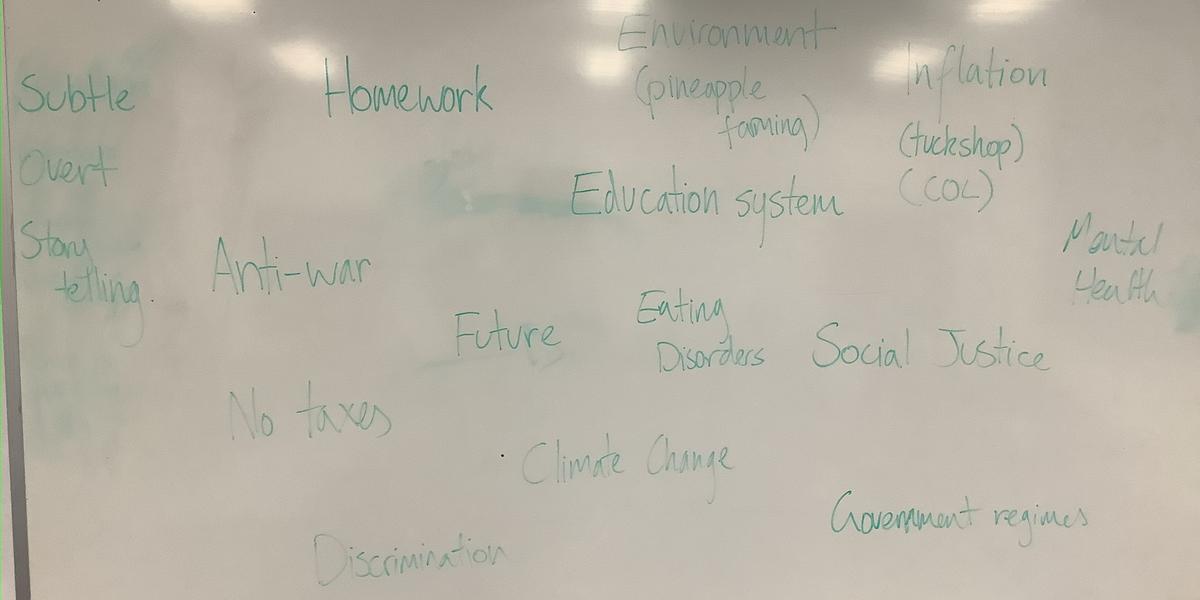 Subtle
Overt
Story
telling.
Homework
Environment
(pineapple
farming)
Inflation
(tuckshop)
(COL)
Education system
Mental
Health
Anti-war
Future
Eating
Disorders
Social Justice
No taxes
Climate Change
Government regimes
Discrimination